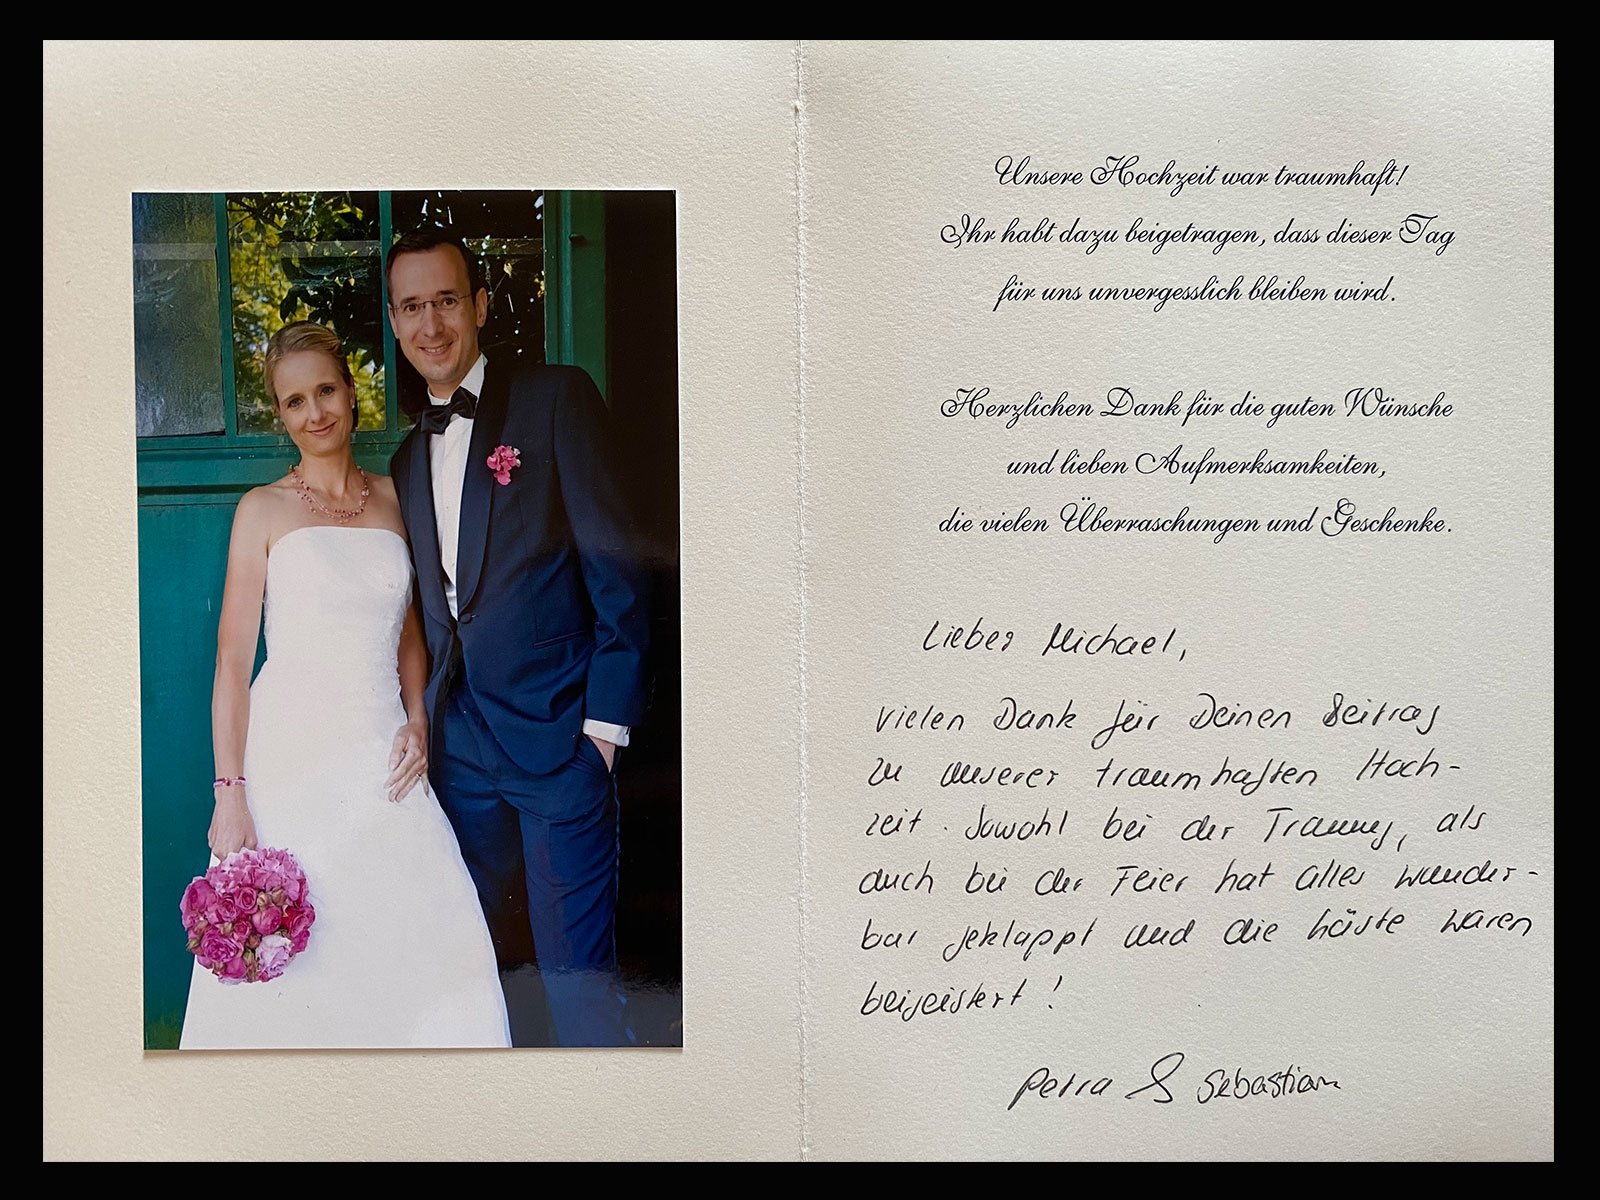 Unsere Hochzeit war traumhaft!
Ihr habt dazu beigetragen, dass dieser Tag
für uns unvergesslich bleiben wird.
Herzlichen Dank für die guten Wünsche
und lieben Aufmerksamkeiten,
die vielen Überraschungen und Geschenke.
Lieber Michael,
vielen Dank für Deinen Beitrag
zu unserer traumhaften Hoch-
zeit. Sowohl bei der Trauung, als
auch bei der Feier hat alles wunder-
bar geklappt und die Gäste waren
begeistert!
Petra & Sebastian